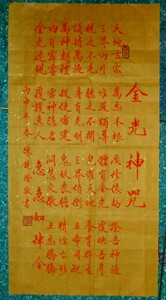 金光神咒
天地玄宗 萬炁本根 廣修億劫 證吾神通
三界內外 惟道獨尊 體有金光 覆映吾身
視之不見 聽之不聞 包羅天地 養育群生
誦持萬遍 身有光明 三界侍衛 五帝司迎
萬神朝禮 役使雷霆 鬼妖喪膽 精怪亡形
內有霹靂 雷神隱名 洞慧交徹 五炁騰騰
金光速現 覆護真人 急急如律令
丙申年 陳 敬書